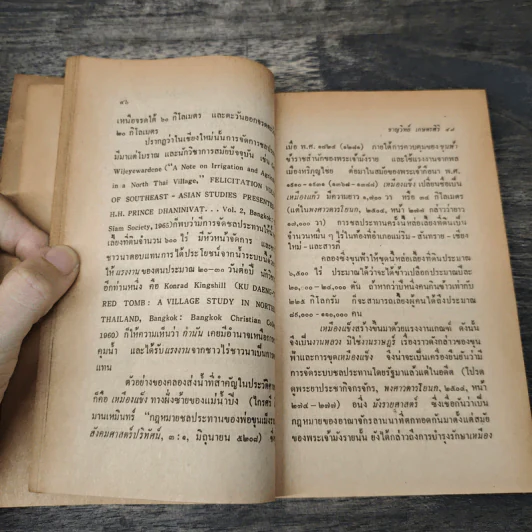 ๙๖
เหนือจรดใต้ ๒๐ กิโลเมตร และตะวันออกจรดตก
๒๐ กิโลเมตร
ปรากฏว่าในเชียงใหม่นั้นการจัดการชล
มีมาแต่โบราณ และนักวิชาการสมัยปัจจุบัน เช่น
Wijeyewardene ("A Note on Irrigation and Agri
in a North Thai Village," FELICITATION VOL
OF SOUTHEAST - ASIAN STUDIES PRESENTED
H.H. PRINCE DHANINIVAT. . . Vol. 2, Bangkok :
Siam Society, 1965) ก็พบว่ามีการจัดการชลประทาน
เลี้ยงที่ดินจำนวน ๖๐๐ ไร่ มีหัวหน้าจัดการ และ
ชาวนาตอบแทนการได้ประโยชน์จากน้ำระบบนี้
ให้แรงงานของตนประมาณ ๒๐-๓๐ วันต่อปี
อีกท่านหนึ่ง คือ Konrad Kingshill (KU DAENG-
RED TOMB : A VILLAGE STUDY IN NORTH
THAILAND, Bangkok : Bangkok Christian Col
1960) ก็ให้ความเห็นว่า กำนัน เคยมีอำนาจเหนือ
คุมน้ำ และได้รับแรงงานจากชาวไร่ชาวนาเป็นการ
แทน
ตัวอย่างของคลองส่งน้ำที่สำคัญในประวัติ
ก็คือ เหมืองแข็ง ทางฝั่งซ้ายของแม่น้ำปิง (ไกรศรี
มานเหมินทร์ "กฎหมายชลประทานของพ่อขุนเม็งราย
สังคมศาสตร์ปริทัศน์, ๓ : ๑, มิถุนายน ๒๕๐๘)
ชาญวิทย์ เกษตรศิริ ๙๗
เมื่อ พ.ศ. ๑๘๒๔ (๑๒๘๑) ภายใต้การควบคุมของขุนฟ้า
ข้าราชสำนักของพระเจ้ามังราย และใช้แรงงานจากพล
เมืองหริภุญไชย ต่อมาในสมัยของพระเจ้ากือนา พ.ศ.
เหมืองแข็ง เปลี่ยนชื่อเป็น
เหมืองแก้ว มีความยาว วา หรือ ๓๔ กิโลเมตร
(แต่ในพงศาวดารโยนก, ๒๕๐๔, หน้า ๒๗๔ กล่าวว่ายาว
๑๗,๐๐๐ วา) การชลประทานครั้งนี้หล่อเลี้ยงที่ดินเป็น
จำนวนหมื่น ๆ ไร่ในท้องที่อำเภอแม่ริม-สันทราย-เชียง
ใหม่-และสารภี
คลองซึ่งขุนฟ้าให้ขุดนี้หล่อเลี้ยงที่ดินประมาณ
๖,๕๐๐ ไร่ ประมาณได้ว่าจะได้ข้าวเปลือกประมาณปีละ
ตัน ถ้าหากว่าปีหนึ่งคนกินข้าวเท่ากับ
๒๒๕ กิโลกรัม ก็จะสามารถเลี้ยงผู้คนได้ถึงประมาณ
คน
เหมืองแข็งสร้างขึ้นมาด้วยแรงงานเกณฑ์ ดังนั้น
จึงเป็นงานหลวง มิใช่งานราษฎร์ เรื่องราวดังกล่าวของขุน
ฟ้าและการขุดเหมืองแข็ง จึงน่าจะเป็นเครื่องยืนยันว่ามี
การจัดระบบชลประทานโดยรัฐมาแล้วแต่ในอดีต (โปรด
ดูพระยาประชากิจกรจักร, พงศาวดารโยนก, ๒๕๐๔, หน้า
๒๗๔-๒๗๗) อนึ่ง มังรายศาสตร์ ซึ่งเชื่อกันว่าเป็น
กฎหมายของอาณาจักรลานนาที่ตกทอดกันมาตั้งแต่สมัย
ของพระเจ้ามังรายนั้น ยังได้กล่าวถึงการบำรุงรักษาเหมือง